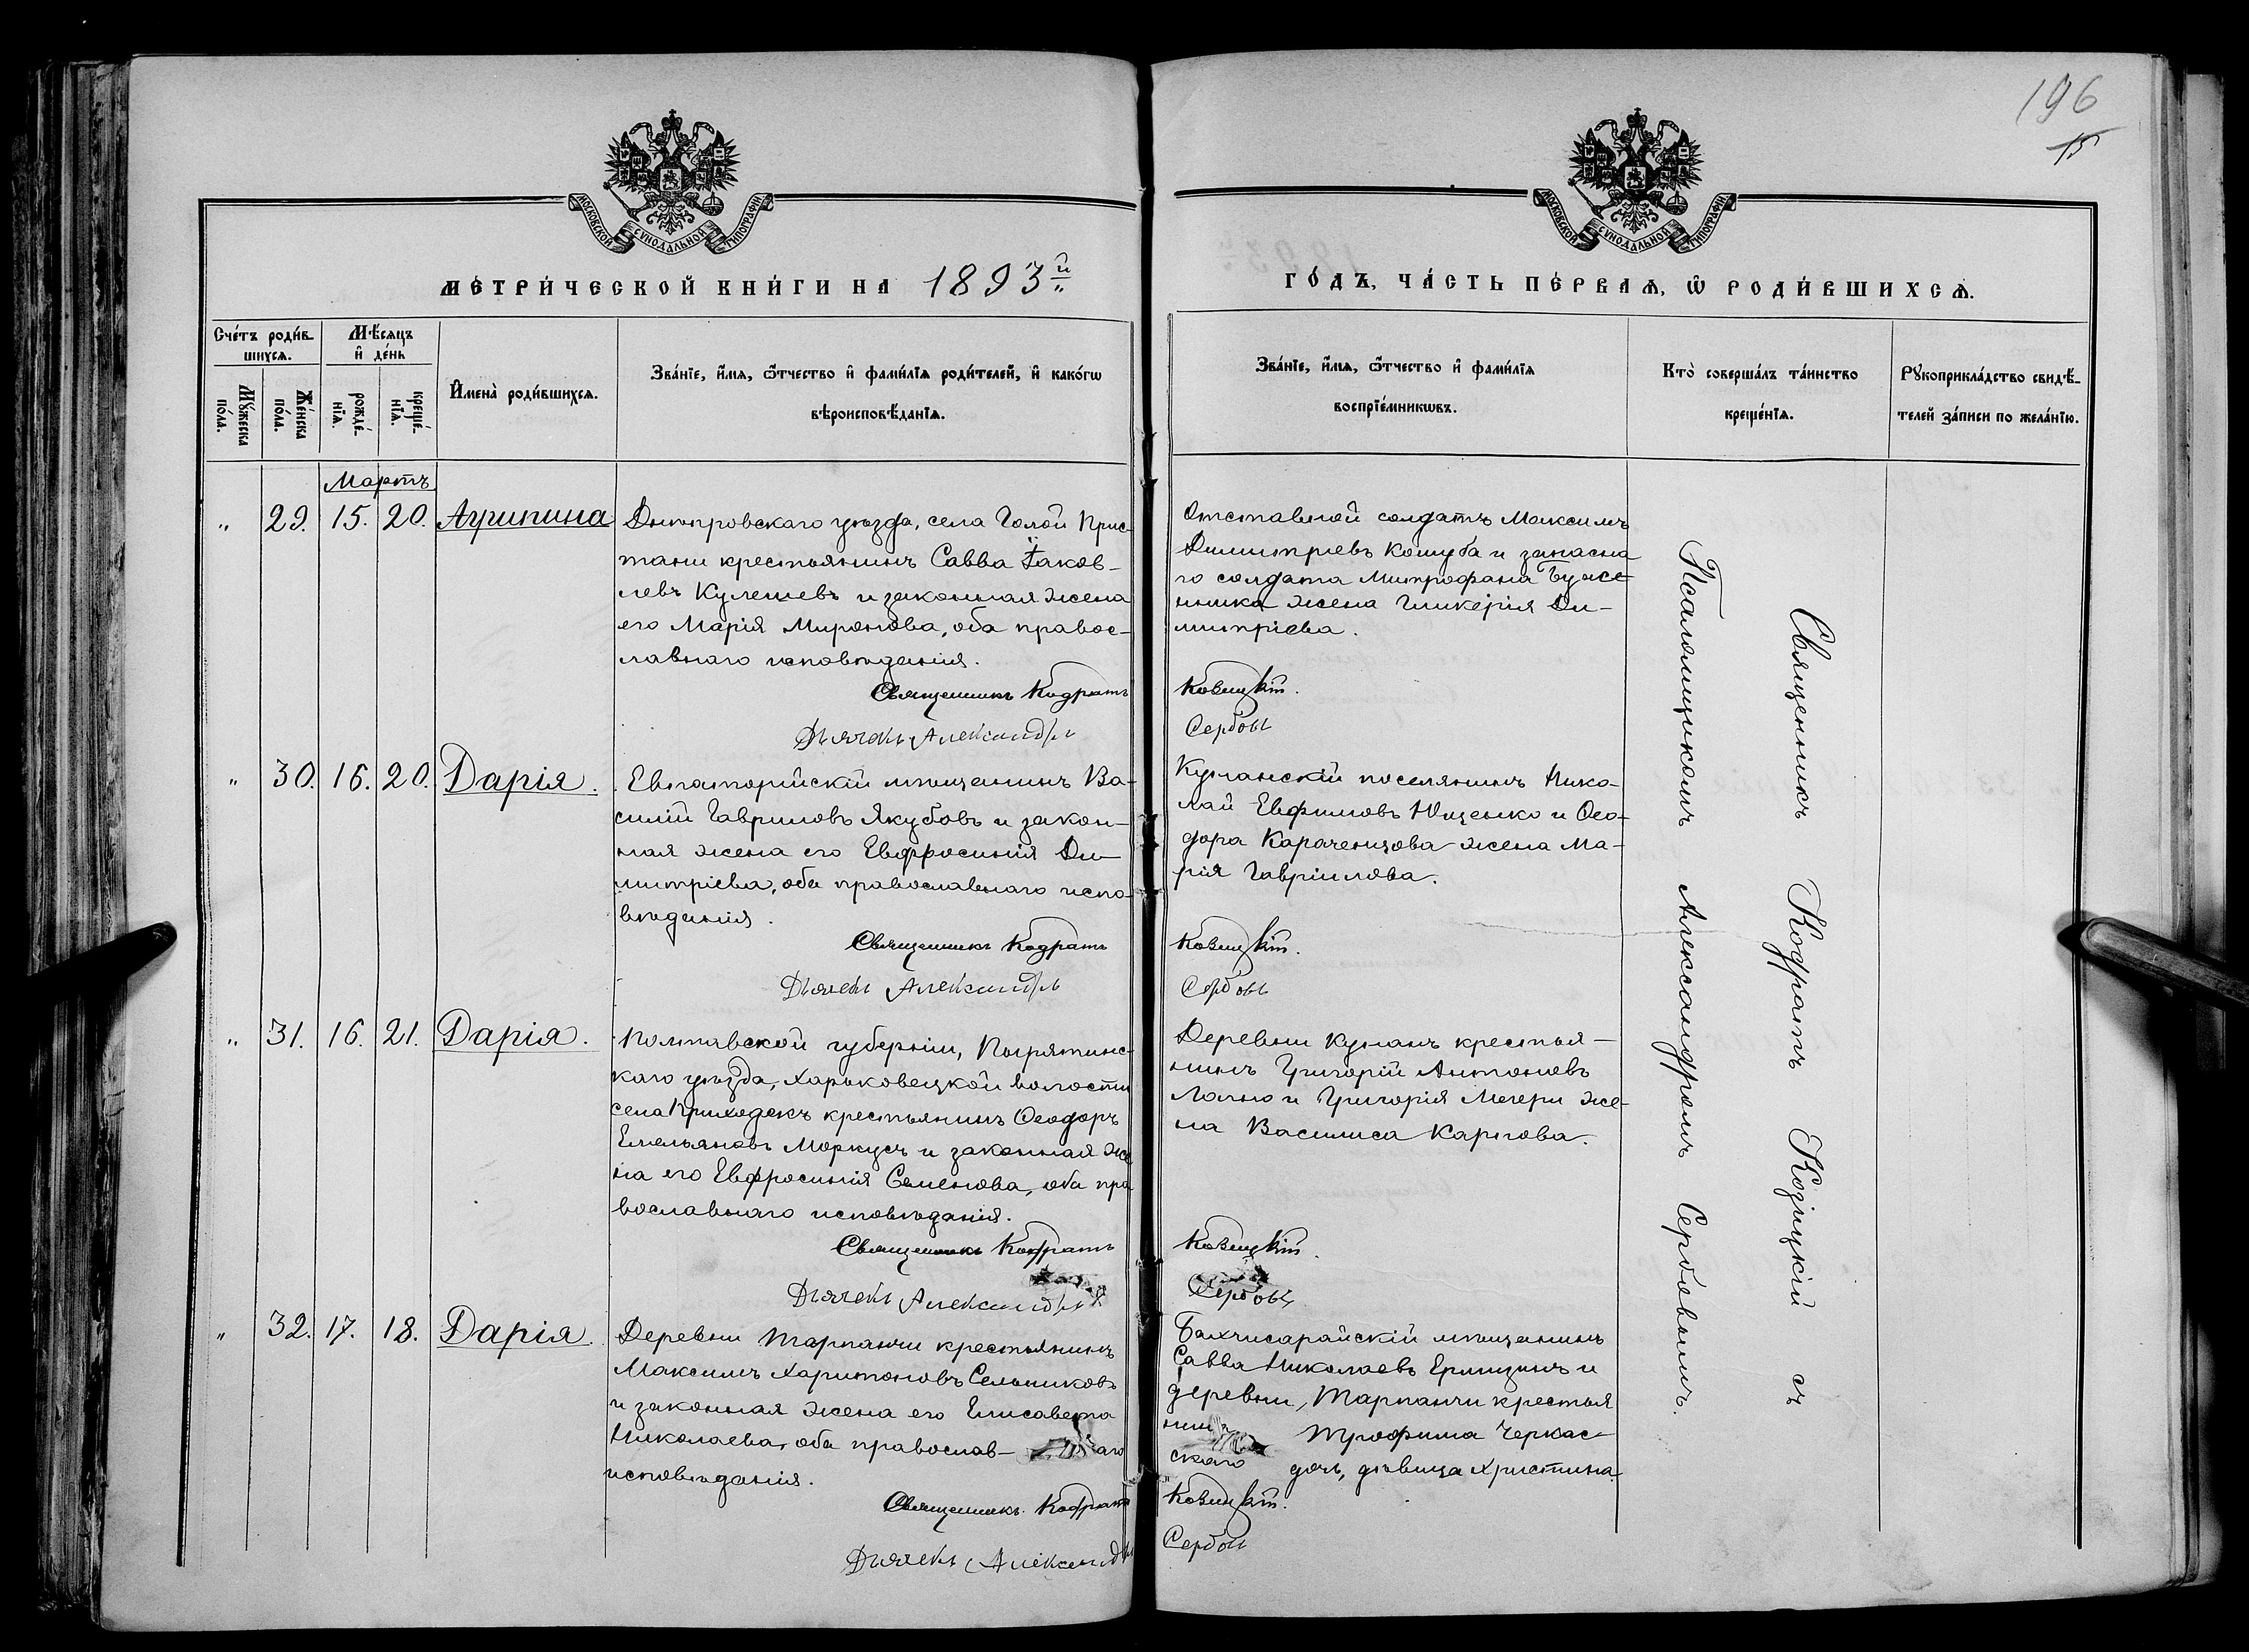 196
15
МОСКОВСКОЙ СѴНОДАЛЬНОЙ ТИПОГРАФІИ
МОСКОВСКОЙ СѴНОДАЛЬНОЙ ТИПОГРАФІИ
МЕТРИ́ЧЕСКОЙ КНИ́ГИ НА 1893й
ГО́ДЪ, ЧА́СТЬ ПЕ́РВАѦ, Ѡ҆ РОДИ́ВШИХСѦ.
Сче́тъ роди́в-
шихсѧ.
Мꙋ́жеска по́ла.
Же́нска по́ла.
Мѣ́сѧцъ
и҆ де́нь
рожде́-
нїѧ.
креще́-
нїѧ.
И҆мена̀ роди́вшихсѧ.
Зва́нїе, и҆́мѧ, ѻ҆́тчество и҆ фами́лїѧ роди́телей, и҆ како́гѡ
вѣроисповѣ́данїѧ.
Зва́нїе, и҆́мѧ, ѻ҆́тчество и҆ фами́лїѧ
воспрїе́мникѡвъ.
Кто̀ соверша́лъ та́инство
креще́нїѧ.
Рꙋкоприкла́дство свидѣ́-
телей за́писи по жела́нїю.
Мартъ
" 29. 15. 20. Агрипина
Днѣпровскаго уѣзда, села Голой Прис-
тани крестьянинъ Савва Іаков-
левъ Кулешевъ и законная жена
его Марія Миронова, оба правос-
лавнаго исповѣданія.
Священникъ Кодратъ
Дьячекъ Александръ
Отставной солдатъ Максимъ
Димитріевъ Кошуба и запасна
го солдата Митрофана Буже-
нника жена Гликерія Ди-
митріева.
Козицкій.
Сербовъ
" 30. 16. 20. Дарія.
Евпаторійскій мѣщанинъ Ва-
силій Гавриловъ Якубовъ и закон-
ная жена его Евфросинія Ди-
митріева, оба православнаго испо-
вѣданія.
Священникъ Кодратъ
Дьячекъ Александръ
Кунанскій поселянинъ Нико-
лай Евфимовъ Ющенко и Ѳео-
дора Караченцова жена Ма-
рія Гавріилова.
Козицкій.
Сербовъ
" 31. 16. 21. Дарія.
Полтавской губерніи, Пирятинс-
каго уѣзда, Харьковецкой волости
села Приходекъ крестьянинъ Ѳеодоръ
Емельяновъ Моркусъ и законная же
на его Евфросинія Семенова, оба пра
вославнаго исповѣданія.
Священникъ Кодратъ
Дьячекъ Александръ
Деревни Кунанъ крестья-
нинъ Григорій Антоновъ
и Григорія Мегери же-
на Василиса Карпова.
Козицкій.
Сербовъ
" 32. 17. 18. Дарія.
Деревни Тарпанчи крестьянинъ
Максимъ Харитоновъ Сельниковъ
и законная жена его Елисавета
Николаева, оба православ-наго
исповѣданія.
Священникъ Кодратъ
Дьячекъ Александръ
Бахчисарайскій мѣщанинъ
Савва Николаевъ Ермицинъ и
деревни, Тарпанчи крестья
нина Трофима Черкас-
скаго дочь, дѣвица Христина.
Козицкій.
Сербовъ
Священникъ Кодратъ Козицкій съ
Псаломщикомъ Александромъ Сербовымъ.